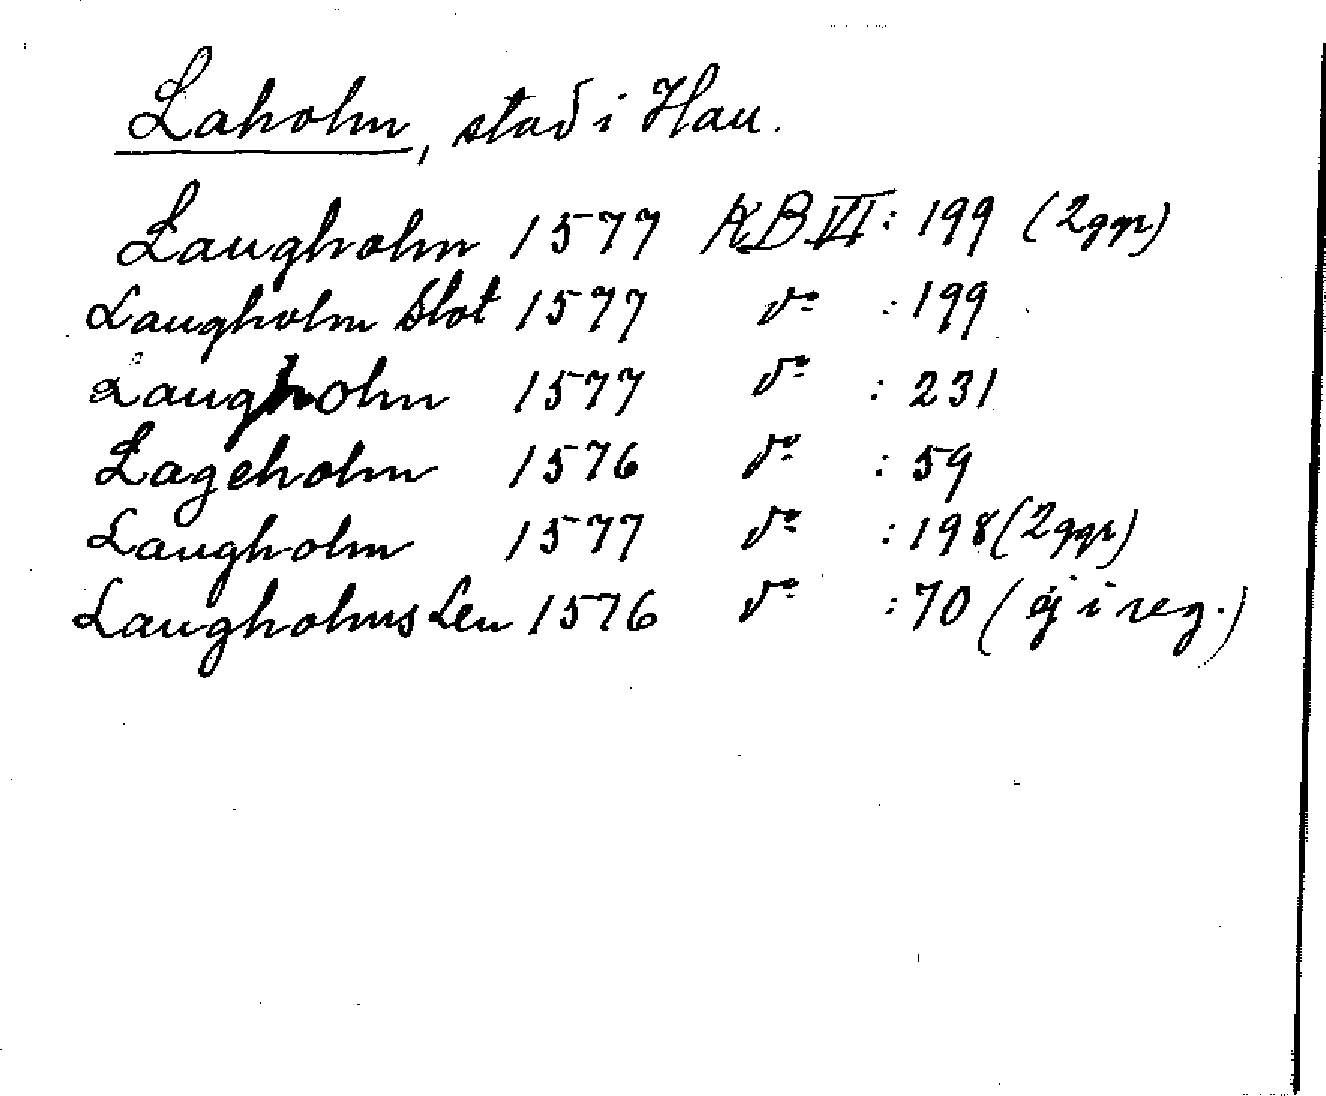 Laholm, stad i Hall.
Laugholm 1577 KB VI: 199 (2ggr)
Laugholm Slot 1577 do : 199
Laugholm 1577 do : 231
Lageholm 1576 do : 59
Laugholm 1577 do : 198 (2ggr)
Laugholms Len 1576 do : 70 (ej i reg.)